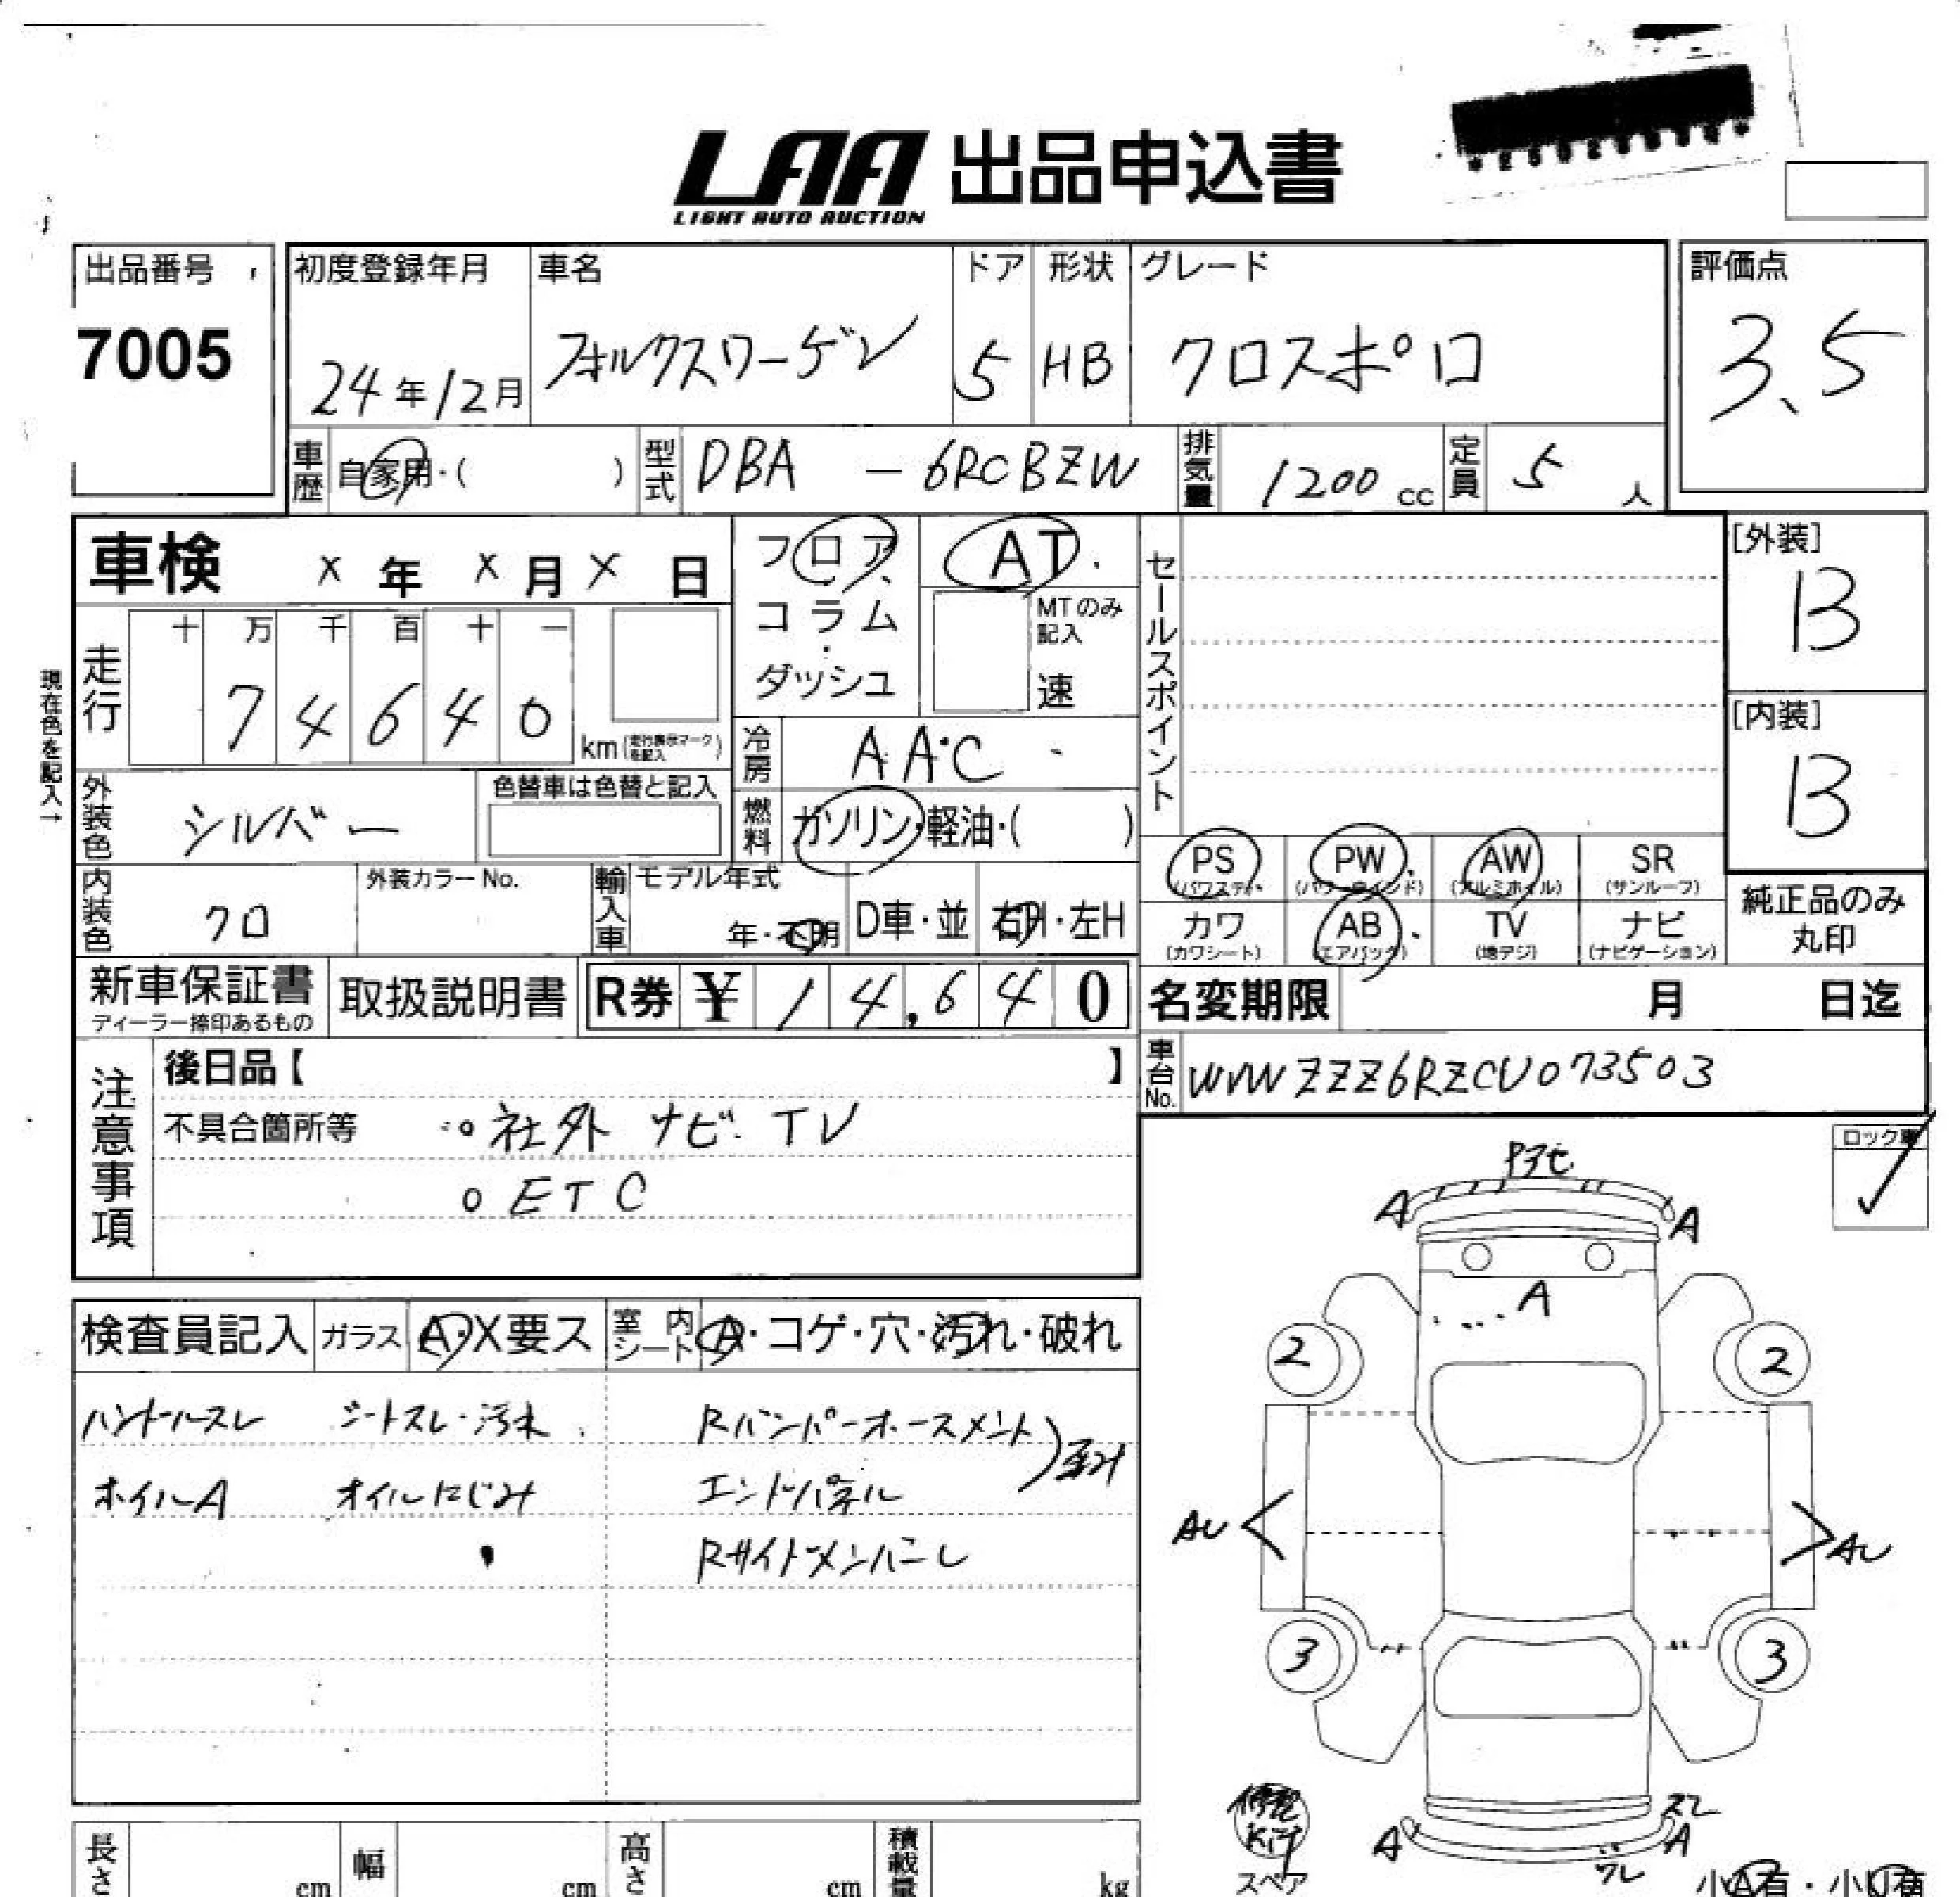 LAA 出品申込書
LIGHT AUTO AUCTION
出品番号
7005
初度登録年月
24年12月
車名
フォルクスワーゲン
ドア
5
形状
HB
グレード
クロスポロ
評価点
3.5
車歴 自家用・( )
型式 DBA - 6RCBZW
排気量 1200 cc
定員 5 人
車検 X 年 X 月 X 日
フロア・
コラム
・
ダッシュ
AT
MTのみ
記入
速
セールスポイント
[外装]
B
[内装]
B
現在色を記入→
走行
十 万 千 百 十 一
7 4 6 4 0
km(走行表示マークを記入)
冷房 AAC
外装色 シルバー
色替車は色替と記入
燃料 ガソリン・軽油・( )
PS
(パワステ)
PW
(パワーウインド)
AW
(アルミホイル)
SR
(サンルーフ)
内装色 クロ
外装カラーNo.
輸入車
モデル年式
年・不明
D車・並
右H・左H
カワ
(カワシート)
AB
(エアバック)
TV
(地デジ)
ナビ
(ナビゲーション)
純正品のみ
丸印
新車保証書
ディーラー捺印あるもの
取扱説明書
R券 ¥ 14,640
名変期限 月 日迄
注意事項
後日品【 】
車台No. WVWZZZ6RZCU073503
不具合箇所等
○社外 ナビ.TV
○ETC
ロック車
✓
検査員記入
ガラス A・X要ス
室内シート A・コゲ・穴・汚れ・破れ
ハンドルスレ シートスレ・汚れ
Rバンパーホースメント
ホイルA オイルにじみ
エンドパネル
Rサイドメンバー
A
A
A
2
2
AU
AU
3
3
修理
Kit
スペア
A
スレ
A
ワレ
小A有・小U有
長さ cm
幅 cm
高さ cm
積載量 kg